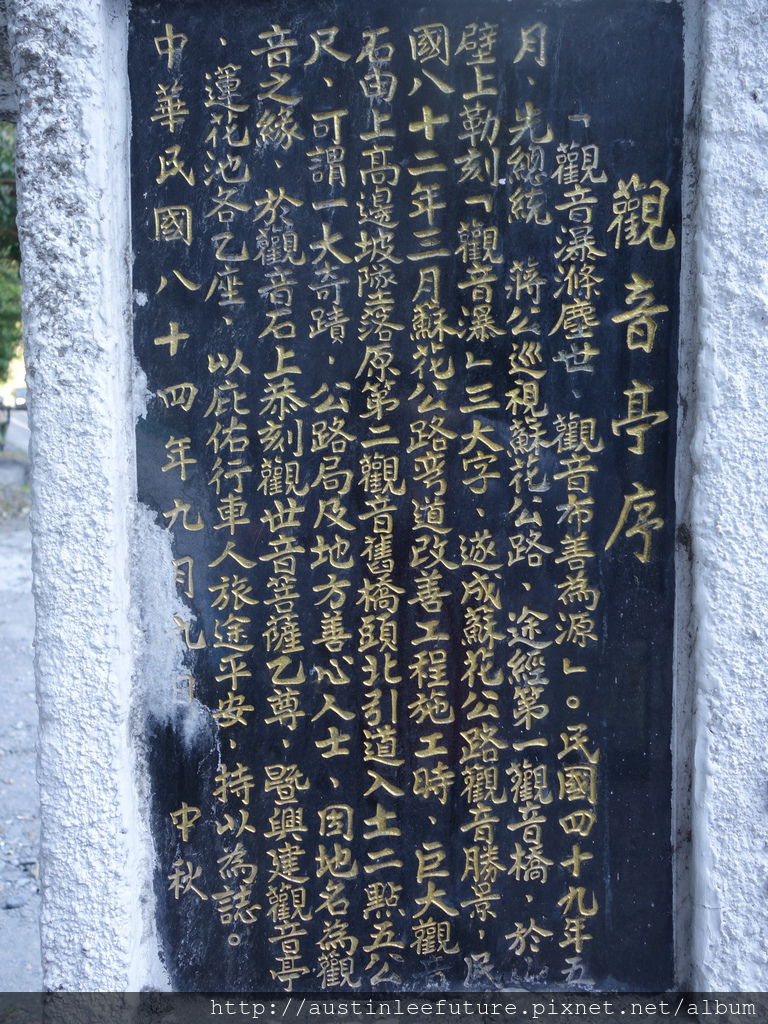 觀音亭序
「觀音瀑滌塵世、觀音布善為源」。民國四十九年五
月、先總統 蔣公巡視蘇花公路、途經第一觀音橋、於山
壁上勒刻「觀音瀑」三大字、遂成蘇花公路觀音勝景，民
國八十二年三月蘇花公路彎道改善工程施工時、巨大觀音
石由上高邊坡墜落原第二觀音舊橋頭北引道入土二點五公
尺、可謂一大奇蹟，公路局及地方善心人士、因地名為觀
音之緣、於觀音石上恭刻觀世音菩薩乙尊，暨興建觀音亭
、蓮花池各乙座、以庇佑行車人旅途平安，持以為誌。
中華民國八十四年九月九日 中秋
http://austinleefuture.pixnet.net/album